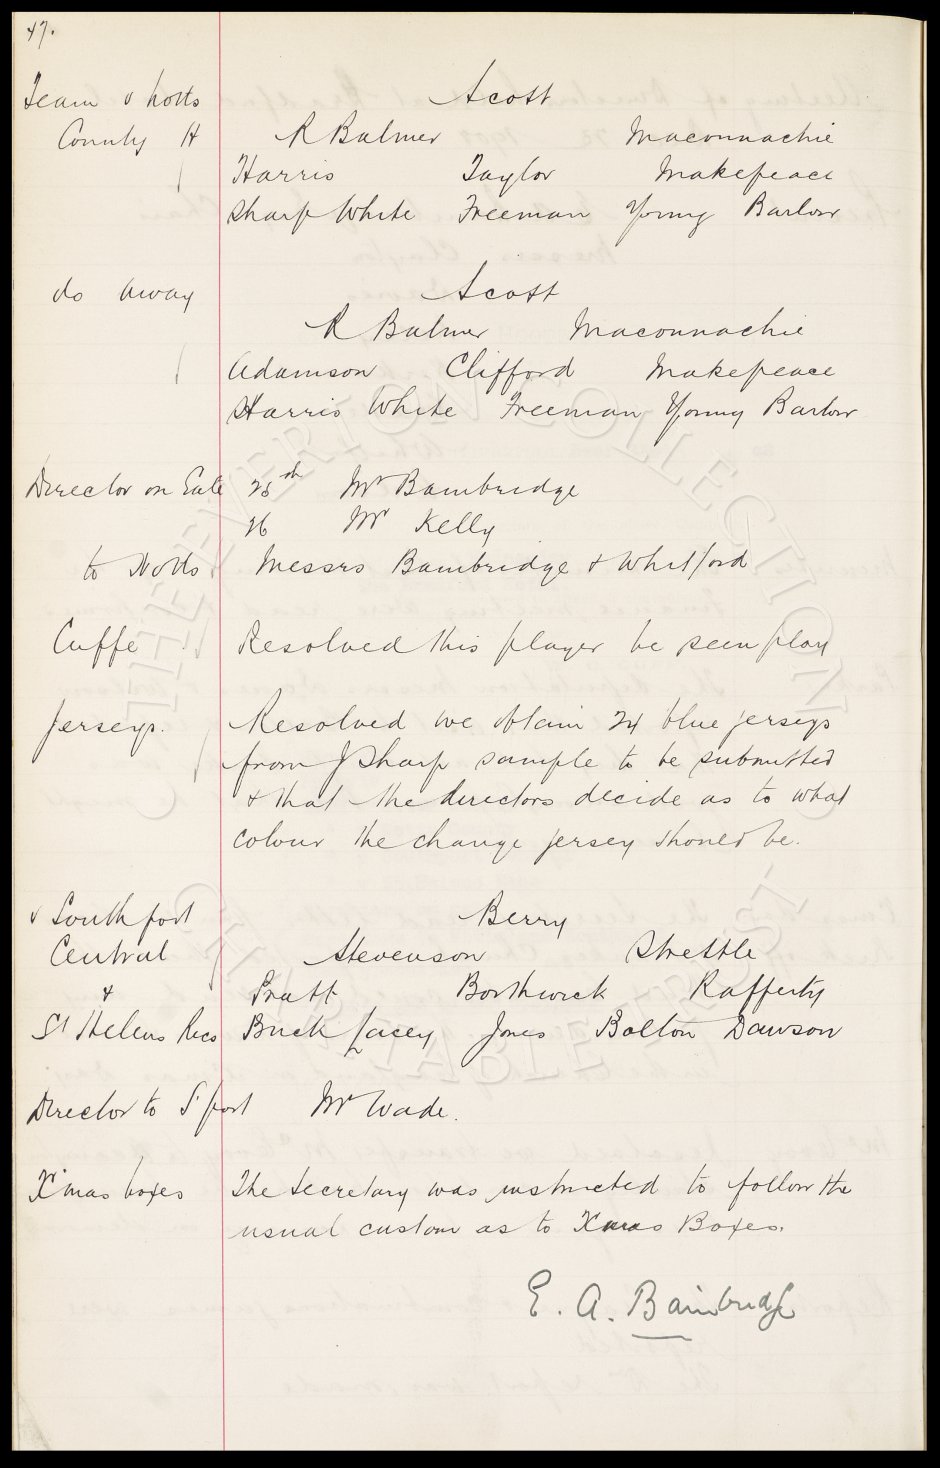 47.
Team v Notts Scott
County H R Balmer Maconnachie
Harris Taylor Makepeace
Sharp White Freeman Young Barlow
do away Scott
R Balmer Maconnachie
Adamson Clifford Makepeace
Harris White Freeman Young Barlow
Director on Gate 25th Mr Bainbridge
26 Mr Kelly
to Notts Messrs Bainbridge & Whitford
Cuffe Resolved this player be seen play
Jerseys. Resolved we obtain 24 blue jerseys
from J Sharp sample to be submitted
& that the directors decide as to what
colour the change jersey should be.
v Southport Berry
Central Stevenson Strettle
& Pratt Borthwick Rafferty
St Helens Recs Buck Lacey Jones Bolton Dawson
Director to S'port Mr Wade.
X'mas boxes The Secretary was instructed to follow the
usual custom as to X'mas Boxes.
E. A. Bainbridge
THE EVERTON COLLECTION
CHARITABLE TRUST